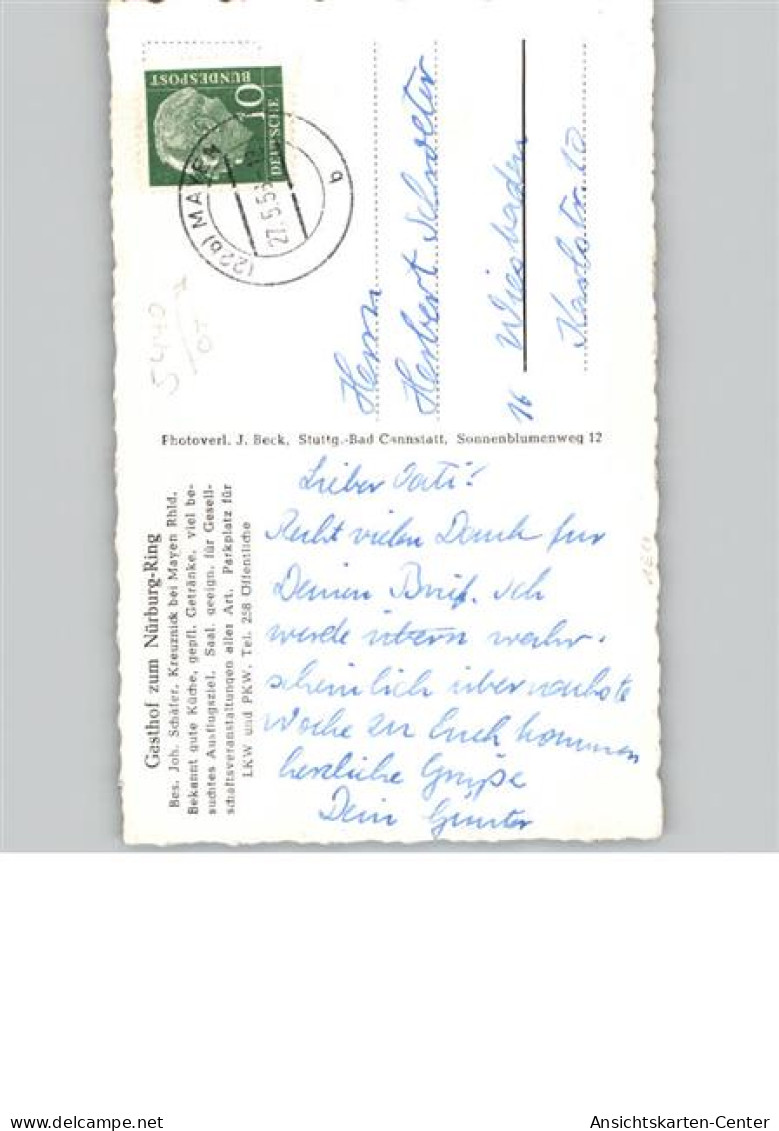 Gasthof zum Nürburg-Ring
Bes. Joh. Schäfer, Kreuznick bei Mayen Rhld.
Bekannt gute Küche, gepfl. Getränke, viel be-
suchtes Ausflugsziel. Saal, geeign. für Gesell-
schaftsveranstaltungen aller Art. Parkplatz für
LKW und PKW. Tel. 258 Öffentliche
Photoverl. J. Beck, Stuttg.-Bad Cannstatt, Sonnenblumenweg 12
DEUTSCHE
BUNDESPOST
10
(22b) MAYEN
27.5.55
b
5440
Herrn
Herbert
16 Wiesbaden
Karlstr. 10
Lieber Vati!
Recht vielen Dank für
Deinen Brief. Ich
werde wahr-
scheinlich übernächste
Woche zu Euch kommen
herzliche Grüße
Dein Günter
Ansichtskarten-Center